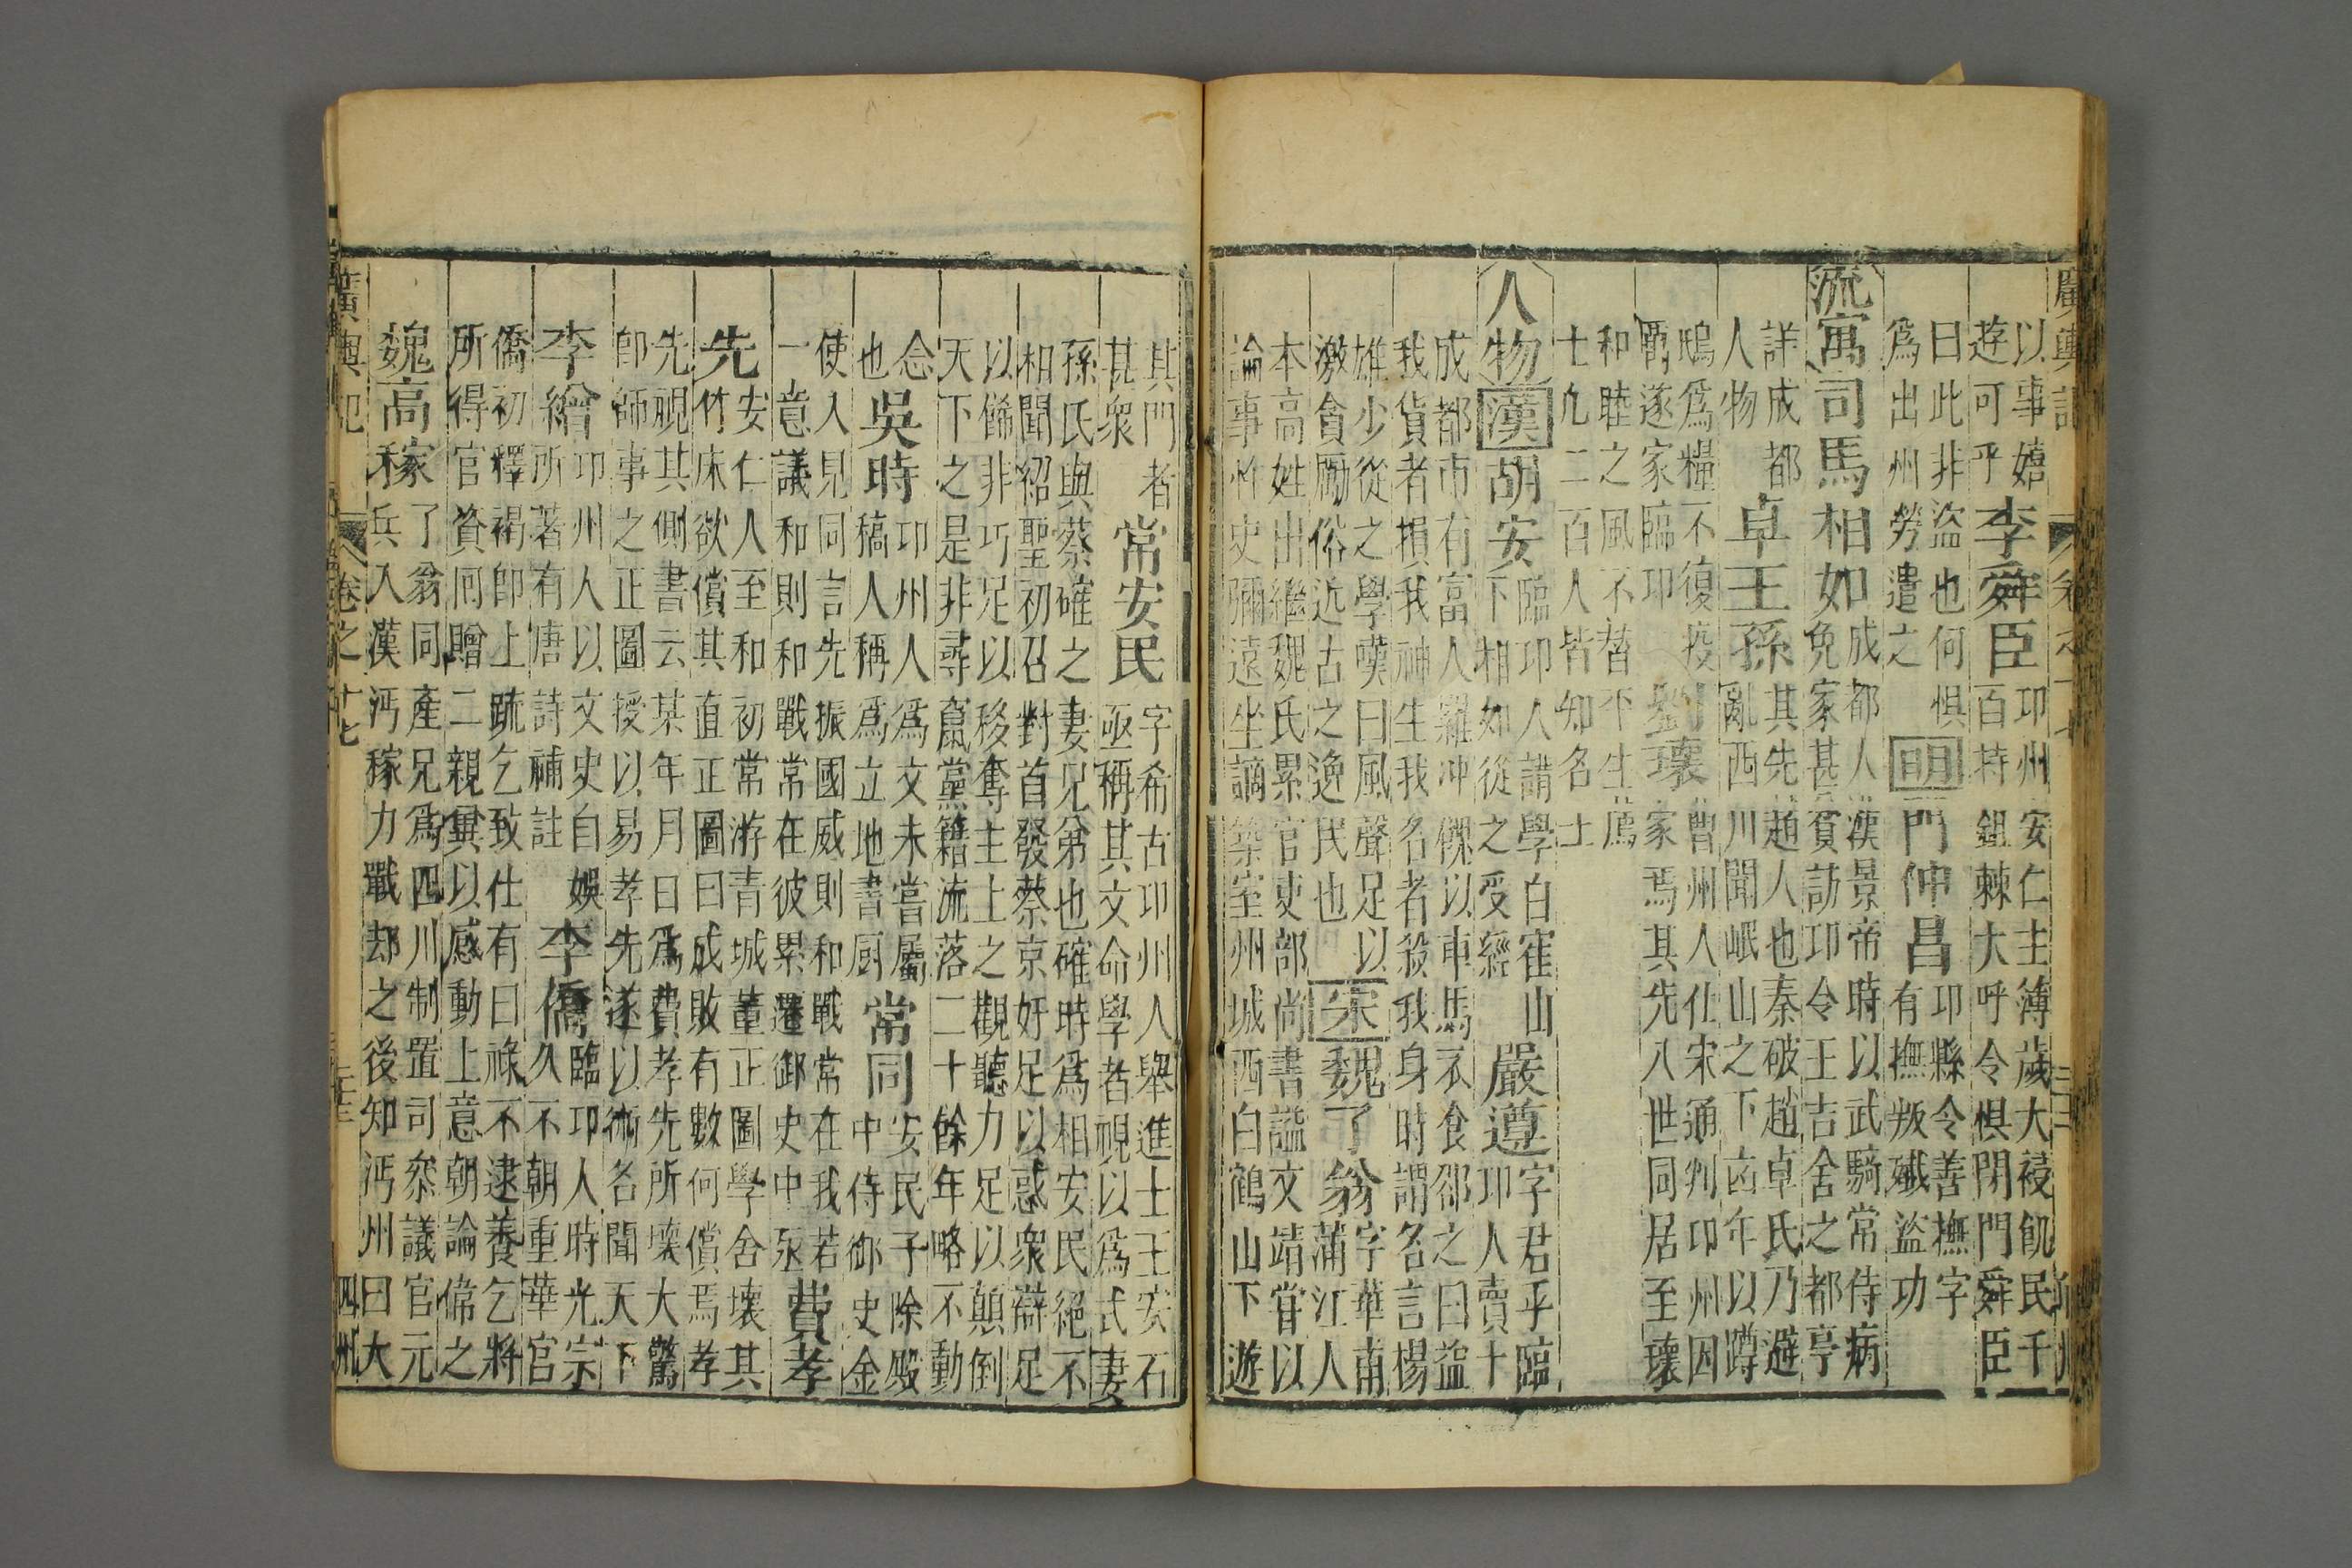 廣輿記
以事嬉
遊可乎李舜臣卭州安仁主簿歲大祲飢民千
百持鉏棘大呼令惧閉門舜臣
曰此非盜也何惧
為出州勞遣之明門仲昌卭縣令善撫字
有撫叛殲盜功
流寓司馬相如成都人漢景帝時以武騎常侍病
免家甚貧訪卭令王吉舍之都亭
詳成都
人物卓王孫其先趙人也秦破趙卓氏乃避
亂西川聞岷山之下凶年以蹲
鴟為糧不復疫
劉瓌曹州人仕宋通判卭州因
家焉其先八世同居至瓌
爵遂家臨卭
和睦之風不替平生薦
士凢二百人皆知名士
人物漢胡安臨卭人講學白崔山
下相如從之受經嚴遵字君平臨
卭人賣卜
成都市有富人羅冲僕以車馬衣食郤之曰益
我貨者損我神生我名者殺我身時謂名言楊
雄少從之學嘆曰風聲足以
激貪勵俗近古之逸民也宋魏了翁字華甫
蒲江人
本高姓出繼魏氏累官吏部尚書謚文靖嘗以
論事忤史彌遠坐謫築室州城西白鶴山下遊
其門者
甚衆常安民字希古卭州人舉進士王安石
亟稱其文命學者視以為式妻
孫氏與蔡確之妻兄弟也確時為相安民絕不
相聞紹聖初召對首發蔡京奸足以惑衆辯足
以餙非巧足以移奪主上之觀聽力足以顛倒
天下之是非尋竄黨籍流落二十餘年略不動
念
也吳時卭州人為文未嘗屬
稿人稱為立地書厨常同安民子除殿
中侍御史金
使人見同言先振國威則和戰常在我若
一意議和則和戰常在彼累遷御史中丞費孝
先安仁人至和初常游青城董正圖學舍壞其
竹床欲償其直正圖曰成敗有數何償焉孝
先視其側書云某年月日為費孝先所壞大驚
即師事之正圖授以易孝先遂以術名聞天下
李繪卭州人以文史自娛
所著有唐詩補註李僑臨卭人時光宗
久不朝重華宮
僑初釋褐即上疏乞致仕有曰祿不逮養乞將
所得官資囘贈二親兾以感動上意朝論偉之
魏高稼了翁同產兄為四川制置司叅議官元
兵入漢沔稼力戰却之後知沔州曰大
廣輿記　卷之十七　四州